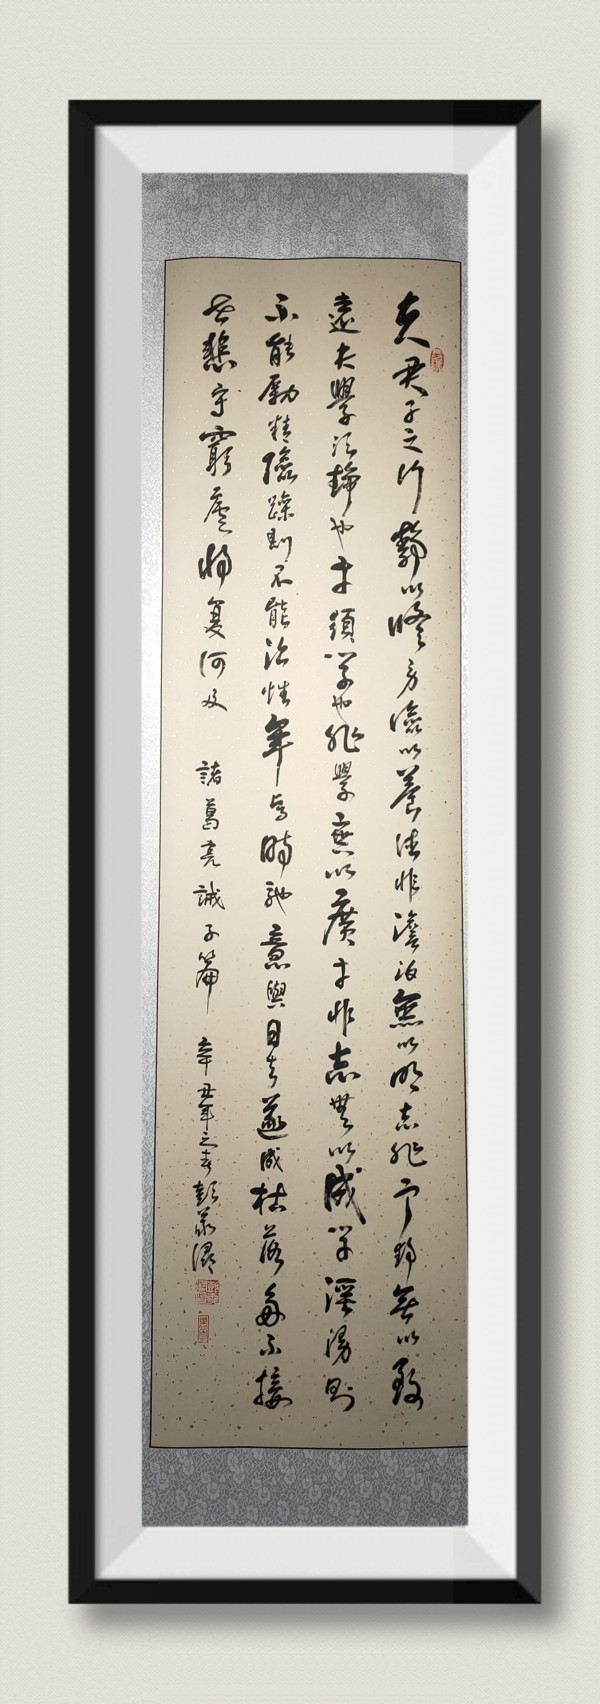 夫君子之行靜以修身儉以養德非澹泊無以明志非寧靜無以致
遠夫學須靜也才須學也非學無以廣才非志無以成學淫慢則
不能勵精險躁則不能治性年與時馳意與日去遂成枯落多不接
世悲守窮廬將复何及 諸葛亮誡子篇 辛丑年之春彭